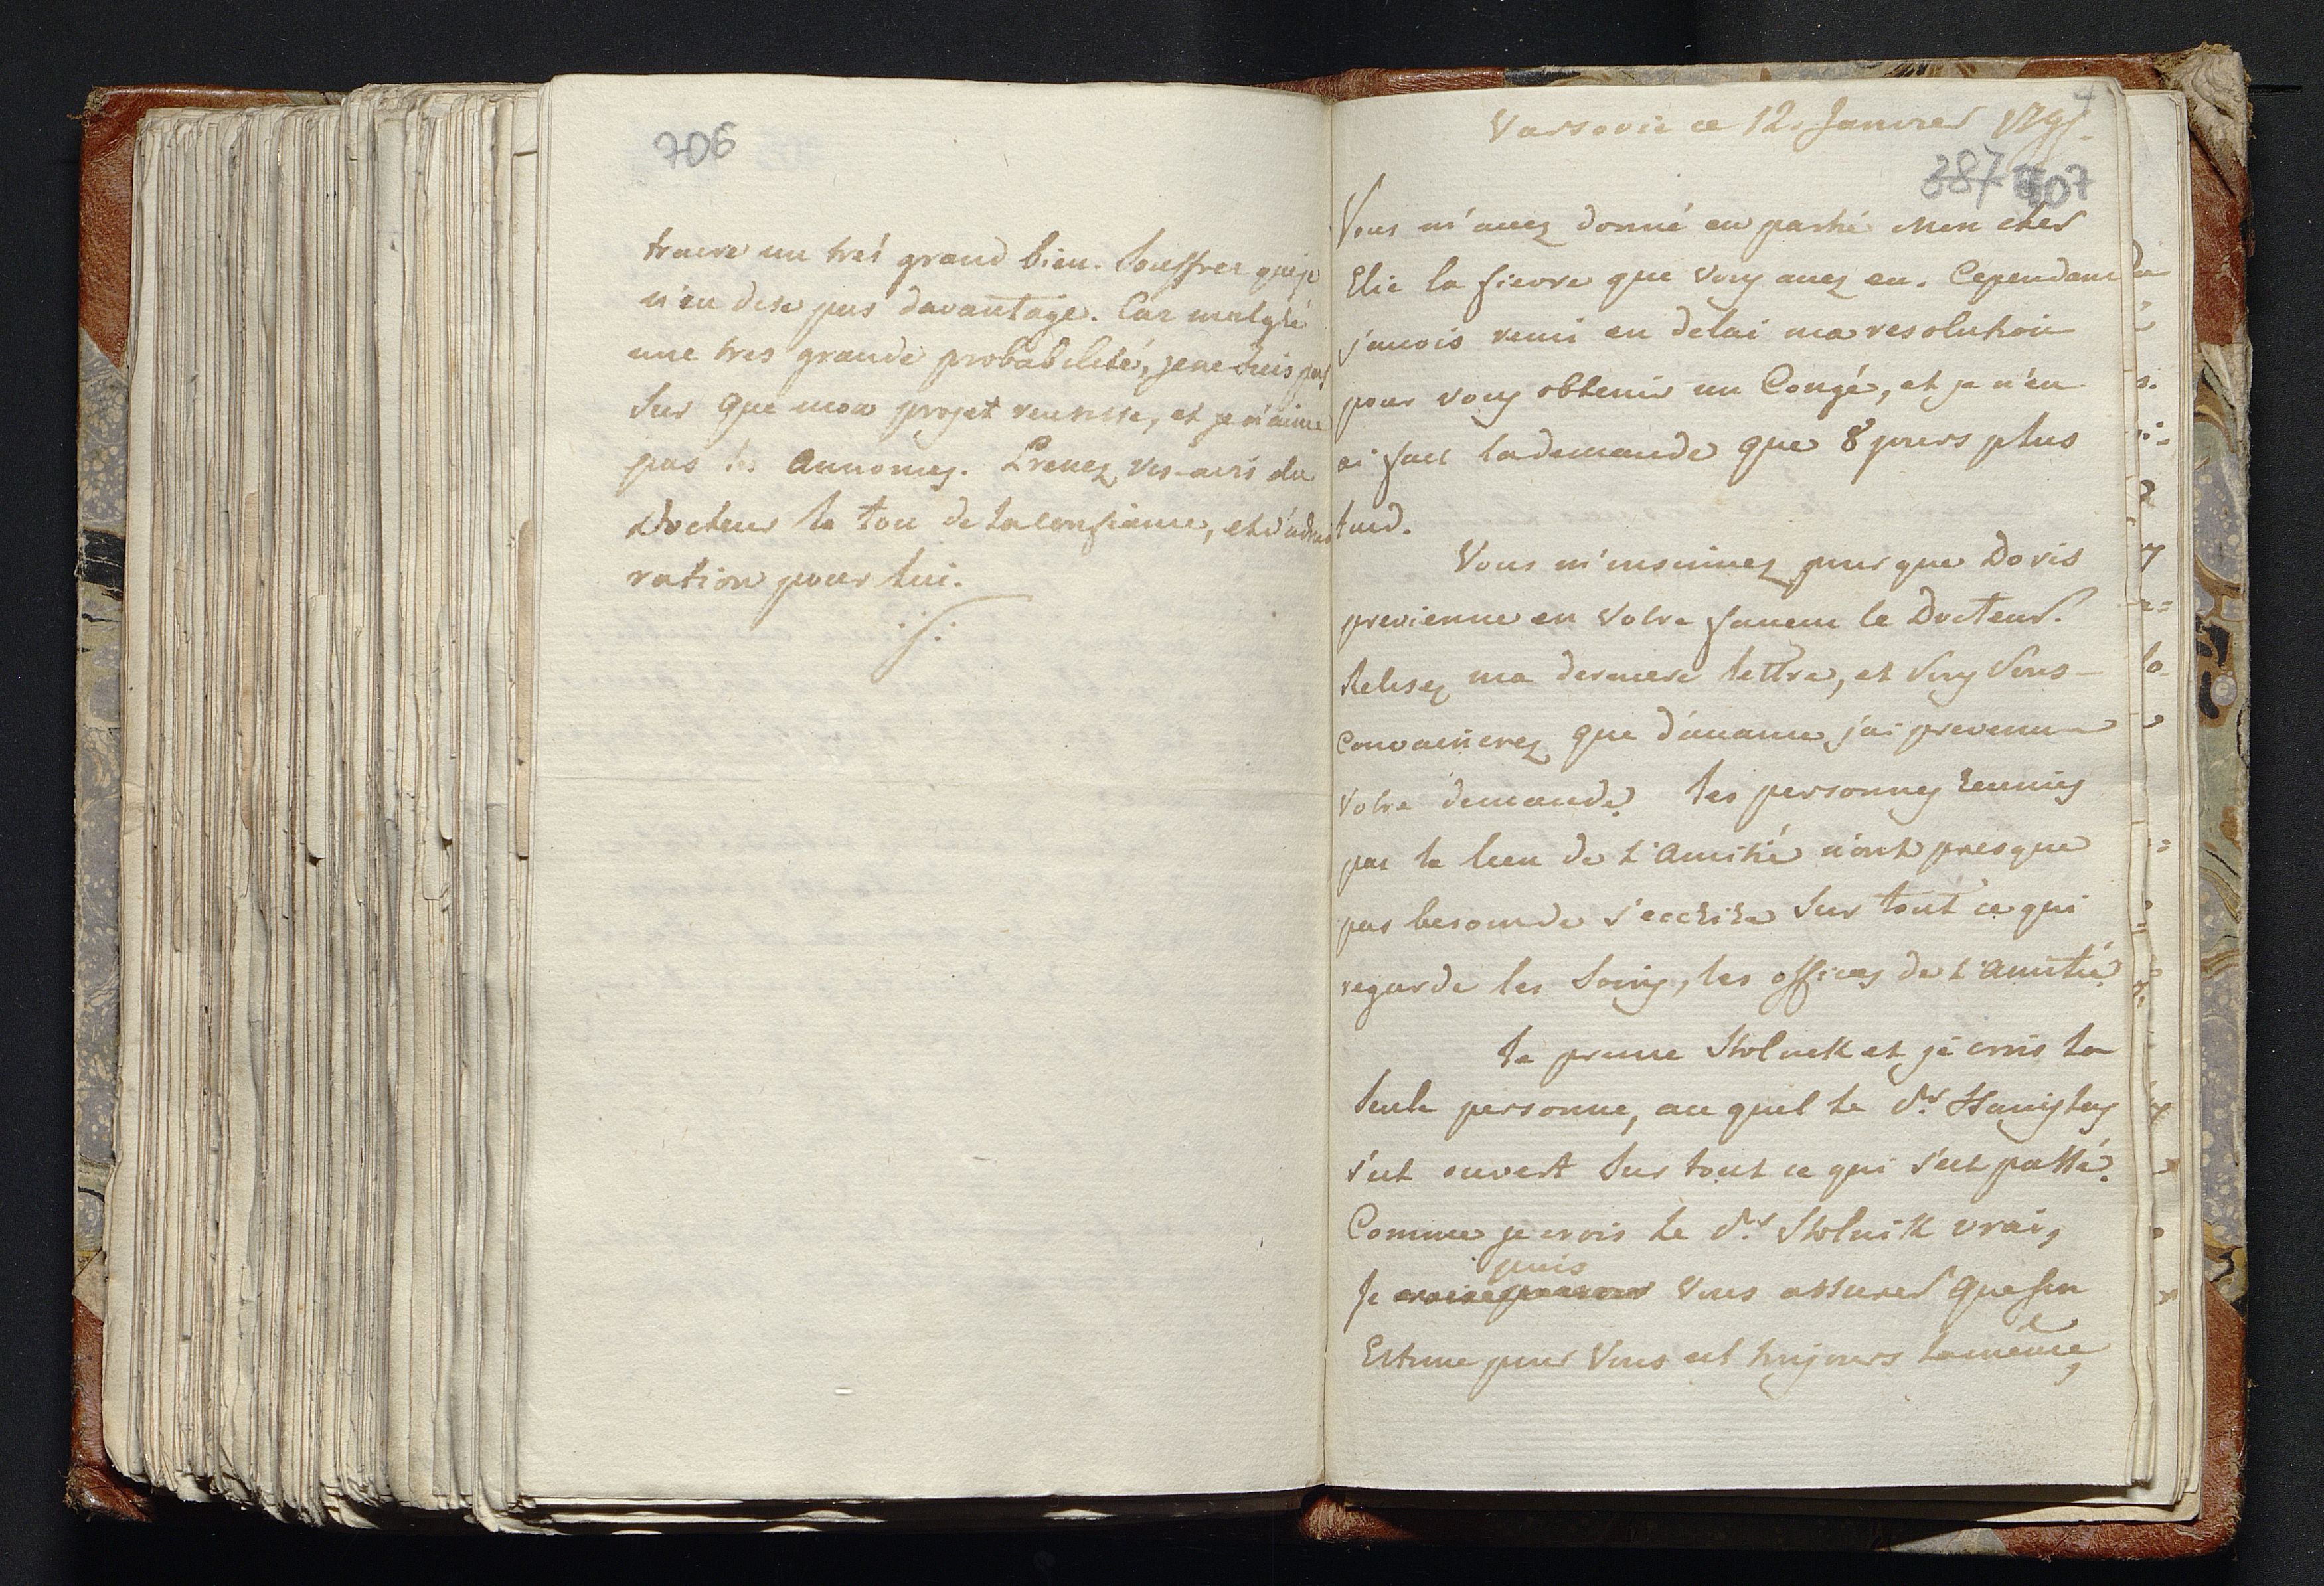 706
trouve un trés grand bien. Souffrez que je
n'en dise pas davantage. Car malgré
une tres grande probabilité, je ne suis pas
sur que mon projet reussisse, et je n'aime
pas les Annonces. Prenez vis-avis du
Docteur le ton de la confiance, et d'admi
ration pour lui.
Varsovie ce 12. Janvier
387 707
Vous m'avez donné en partie Mon cher
Elie la fievre que vous avez eu. Cependant
j'avois remi en delai ma resolution
pour vous obtenir un Congé, et je n'en
ai fait la demande que 8 jours plus
tard.
Vous m'insinuez pour que Doris
previenne en votre faveur le Docteur.
Relisez ma derniere lettre, et vous vous
convaincrez que d'avance j'ai prevenu
votre demande. les personnes reunies
par le lien de l'Amitié n'ont presque
pas besoin de s'ecrire sur tout ce qui
regarde les soins, les offices de l'Amitié.
le prince Stolnik et je crois la
seule personne, au quel le Sr.
s'est ouvert sur tout ce qui s'est passé.
Comme je crois le Sr. Stolnik vrai,
puis
Je vous assurer que son
Estime pour vous est toujours la même,